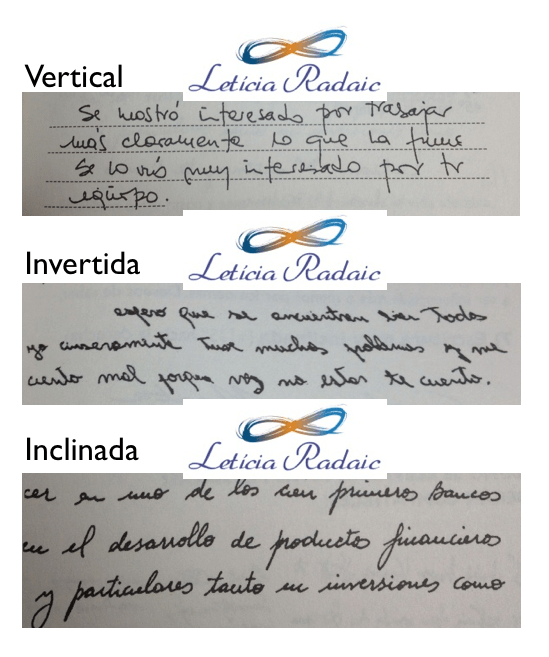 Letícia Radaic
Vertical
Se mostró interesado por trabajar
más claramente lo que la
Se lo vió muy interesado por
equipo.
Letícia Radaic
Invertida
espero que se encuentren bien Todos
yo sinceramente tuve muchos problemas y me
siento mal porque voy no estar te cuento.
Letícia Radaic
Inclinada
cer en uno de los cien primeros bancos
en el desarrollo de productos financieros
y particulares tanto en inversiones como